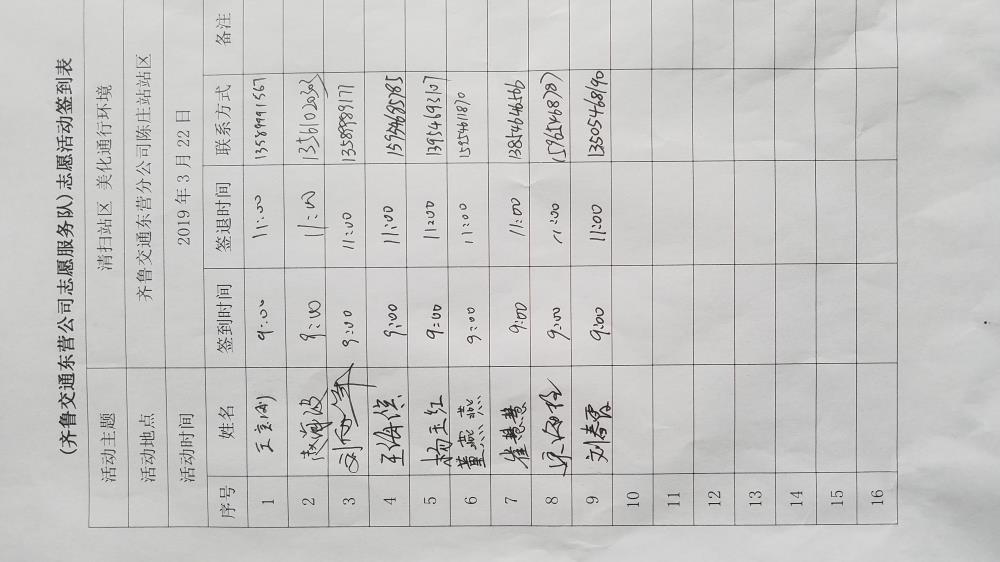 (齐鲁交通东营公司志愿服务队)志愿活动签到表
活动主题 清扫站区 美化通行环境
活动地点 齐鲁交通东营分公司陈庄站站区
活动时间 2019 年 3 月 22 日
序号 姓名 签到时间 签退时间 联系方式 备注
1 9:00 11:00 13589991567
2 赵海波 9:00 11:00 13561020303
3 9:00 11:00 13589989177
4 王海滨 9:00 11:00 15954685785
5 杨玉红 9:00 11:00 13954693107
6 董燕燕 9:00 11:00 15954611870
7 崔慧慧 9:00 11:00 13854646566
8 9:00 11:00 15965468787
9 刘春雷 9:00 11:00 13505468190
10
11
12
13
14
15
16